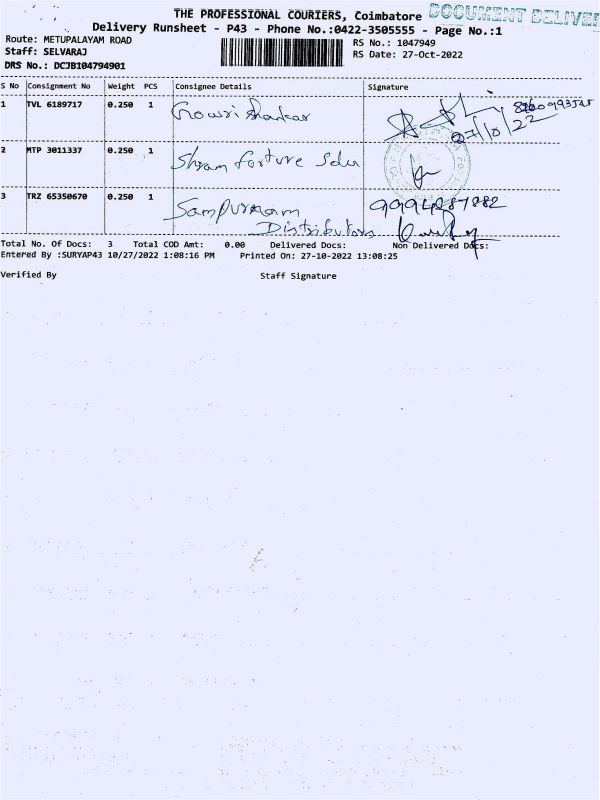 THE PROFESSIONAL COURIERS, Coimbatore DOCUMENT DELIVER
Delivery Runsheet - P43 - Phone No.:0422-3505555 - Page No.:1
Route: METUPALAYAM ROAD RS No.: 1047949
Staff: SELVARAJ RS Date: 27-Oct-2022
DRS No.: DCJB104794901
S No Consignment No Weight PCS Consignee Details Signature
1 TVL 6189717 0.250 1 Gowri Shankar
2 MTP 3011337 0.250 1
3 TRZ 65350670 0.250 1 Sampurnam 9994287882
Distributors
Total No. Of Docs: 3 Total COD Amt: 0.00 Delivered Docs: Non Delivered Docs:
Entered By :SURYAP43 10/27/2022 1:08:16 PM Printed On: 27-10-2022 13:08:25
Verified By Staff Signature